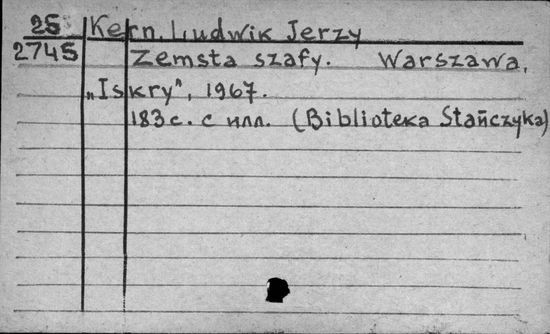 25 Kern, Ludwik Jerzy
2745 Zemsta szafy. Warszawa,
„Iskry", 1967.
183 с. с илл. (Biblioteka Stańczyka)